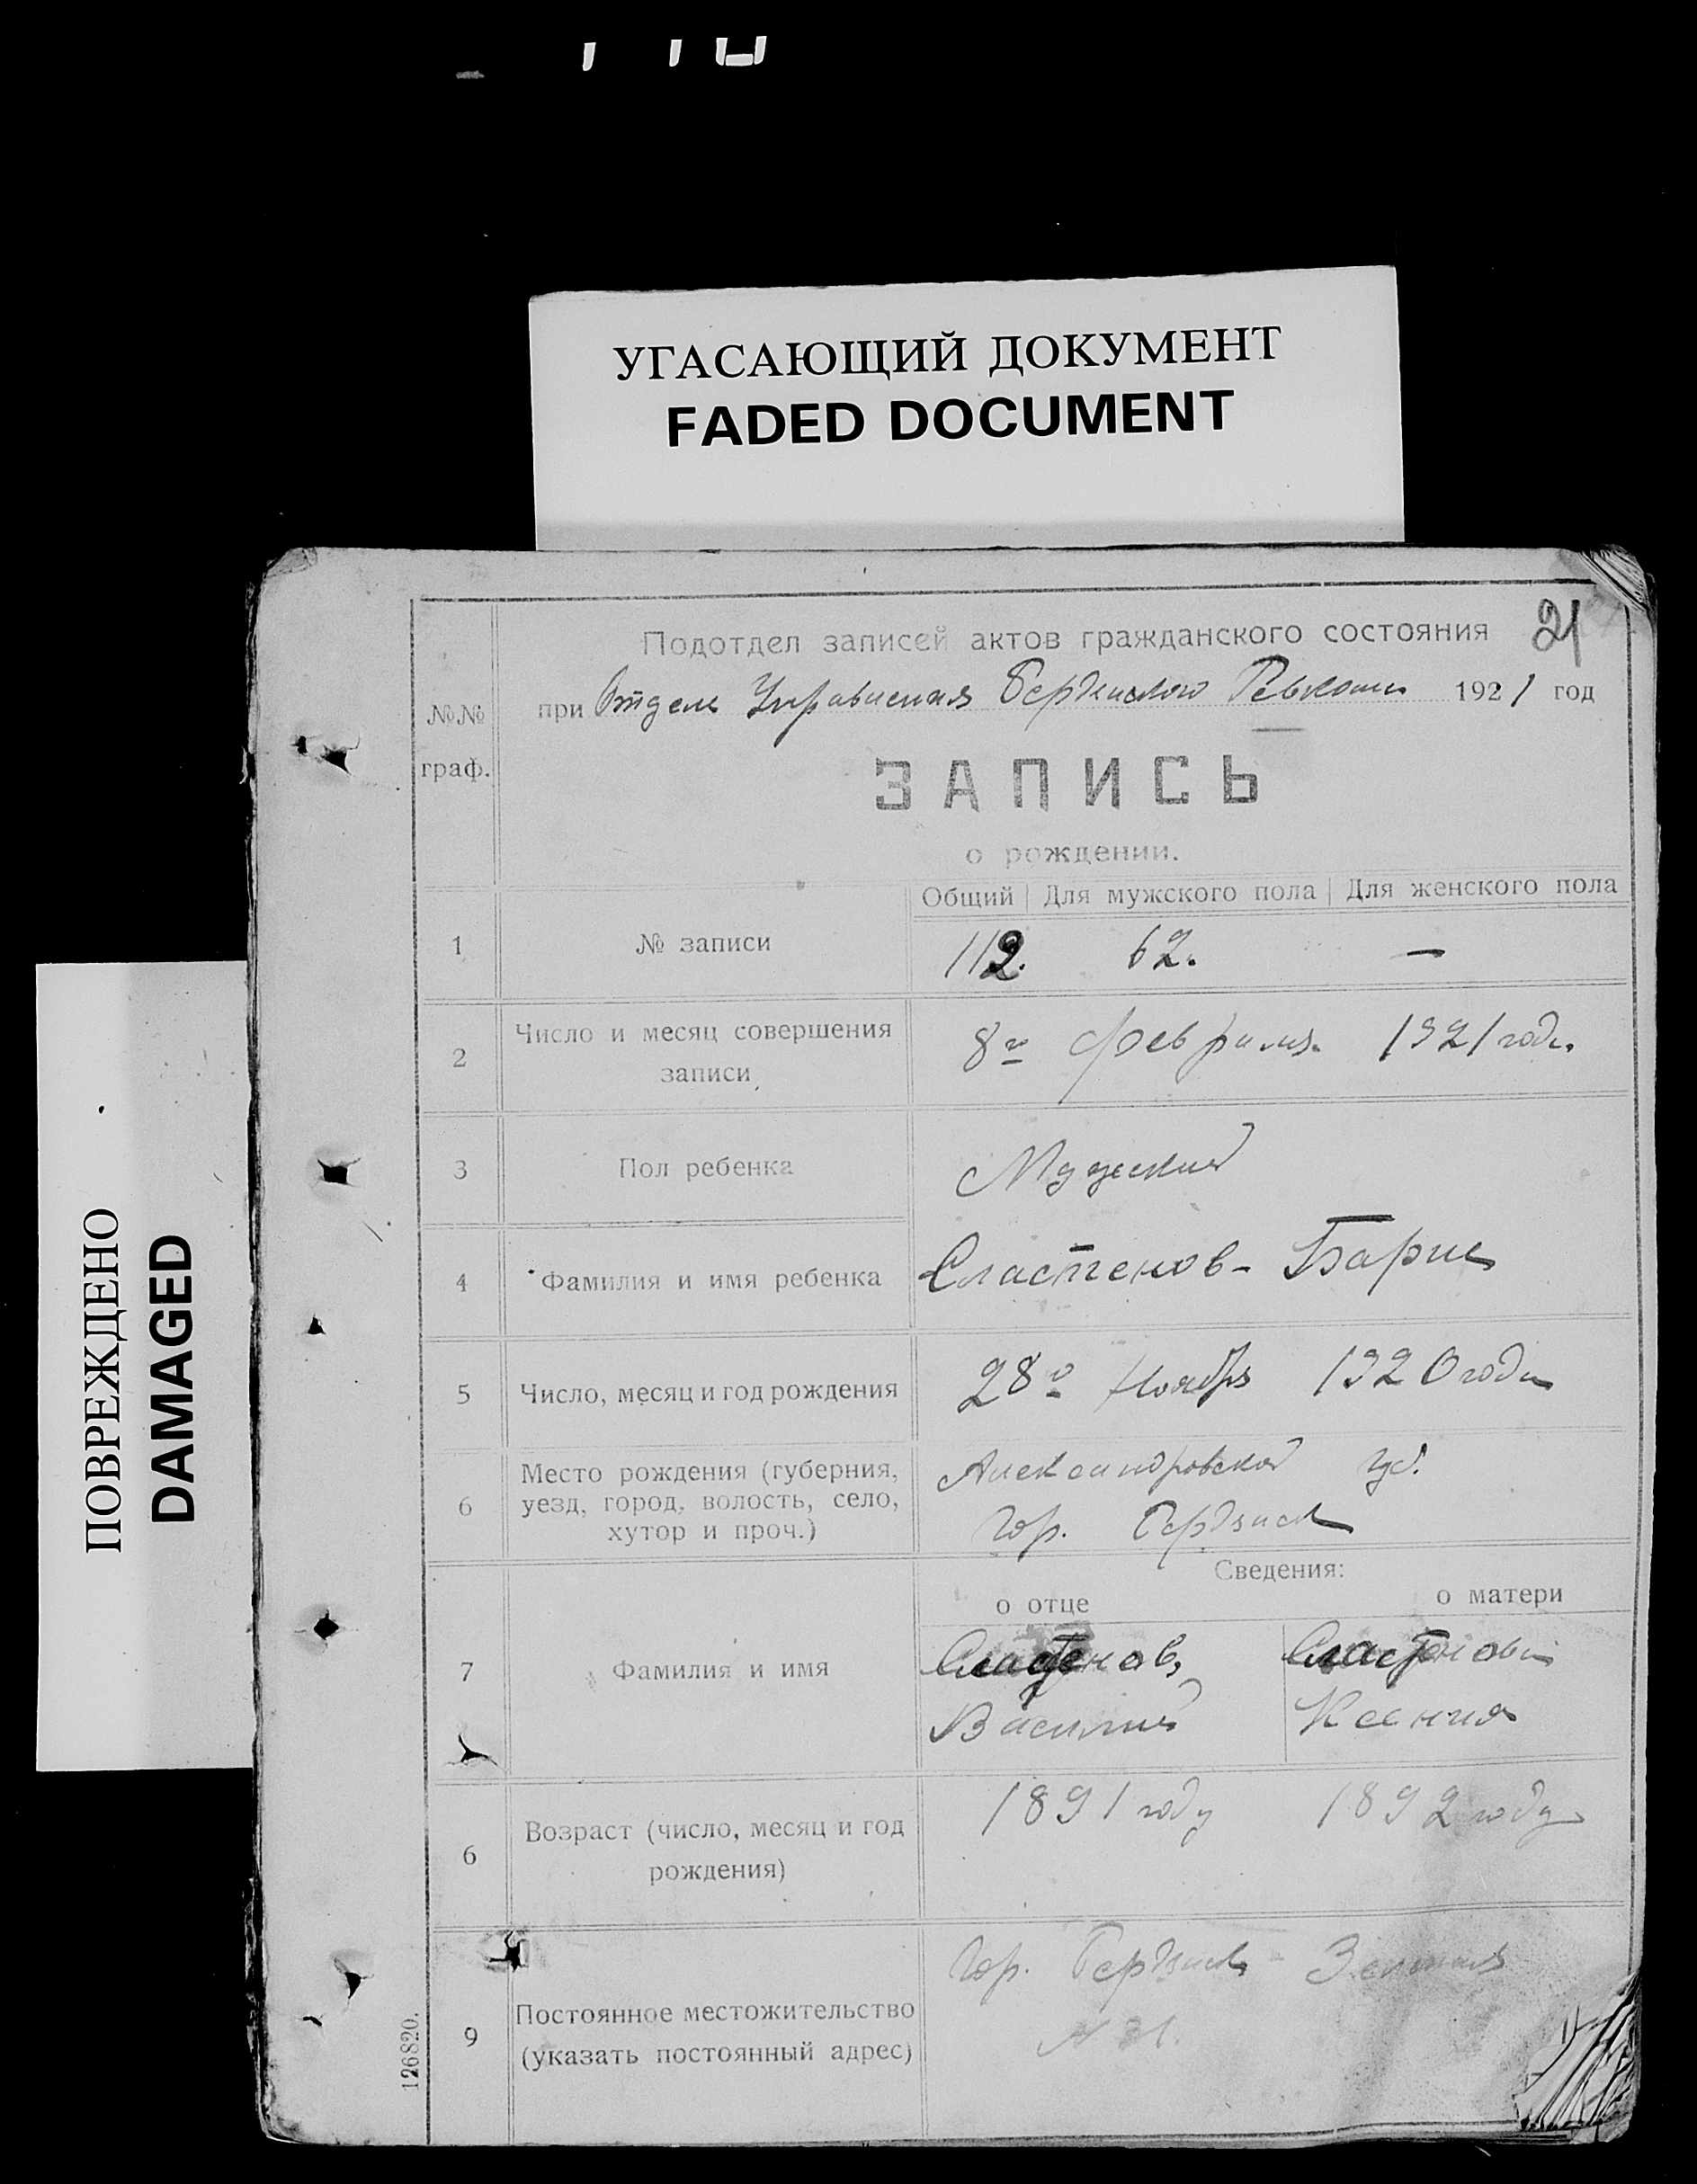 УГАСАЮЩИЙ ДОКУМЕНТ
FADED DOCUMENT
ПОВРЕЖДЕНО
DAMAGED
21
Подотдел записей актов гражданского состояния
при Отделе Управления Бердянского Ревкома 1921 год
№№
граф.
ЗАПИСЬ
о рождении.
Общий Для мужского пола Для женского пола
1 № записи 112. 62. —
2 Число и месяц совершения
записи
8го февраля 1921 года.
3 Пол ребенка Мужской
4 Фамилия и имя ребенка Сластенов - Барис
5 Число, месяц и год рождения 28го Ноября 1920 года
6 Место рождения (губерния,
уезд, город, волость, село,
хутор и проч.)
Александровской губ.
Гор. Бердянск
Сведения:
о отце о матери
7 Фамилия и имя
Сластенов, Сластенова
Василий Ксения
6 Возраст (число, месяц и год
рождения)
1891 году 1892 году
9 Постоянное местожительство
(указать постоянный адрес)
Гор. Бердянск -
№ 31.
126820.